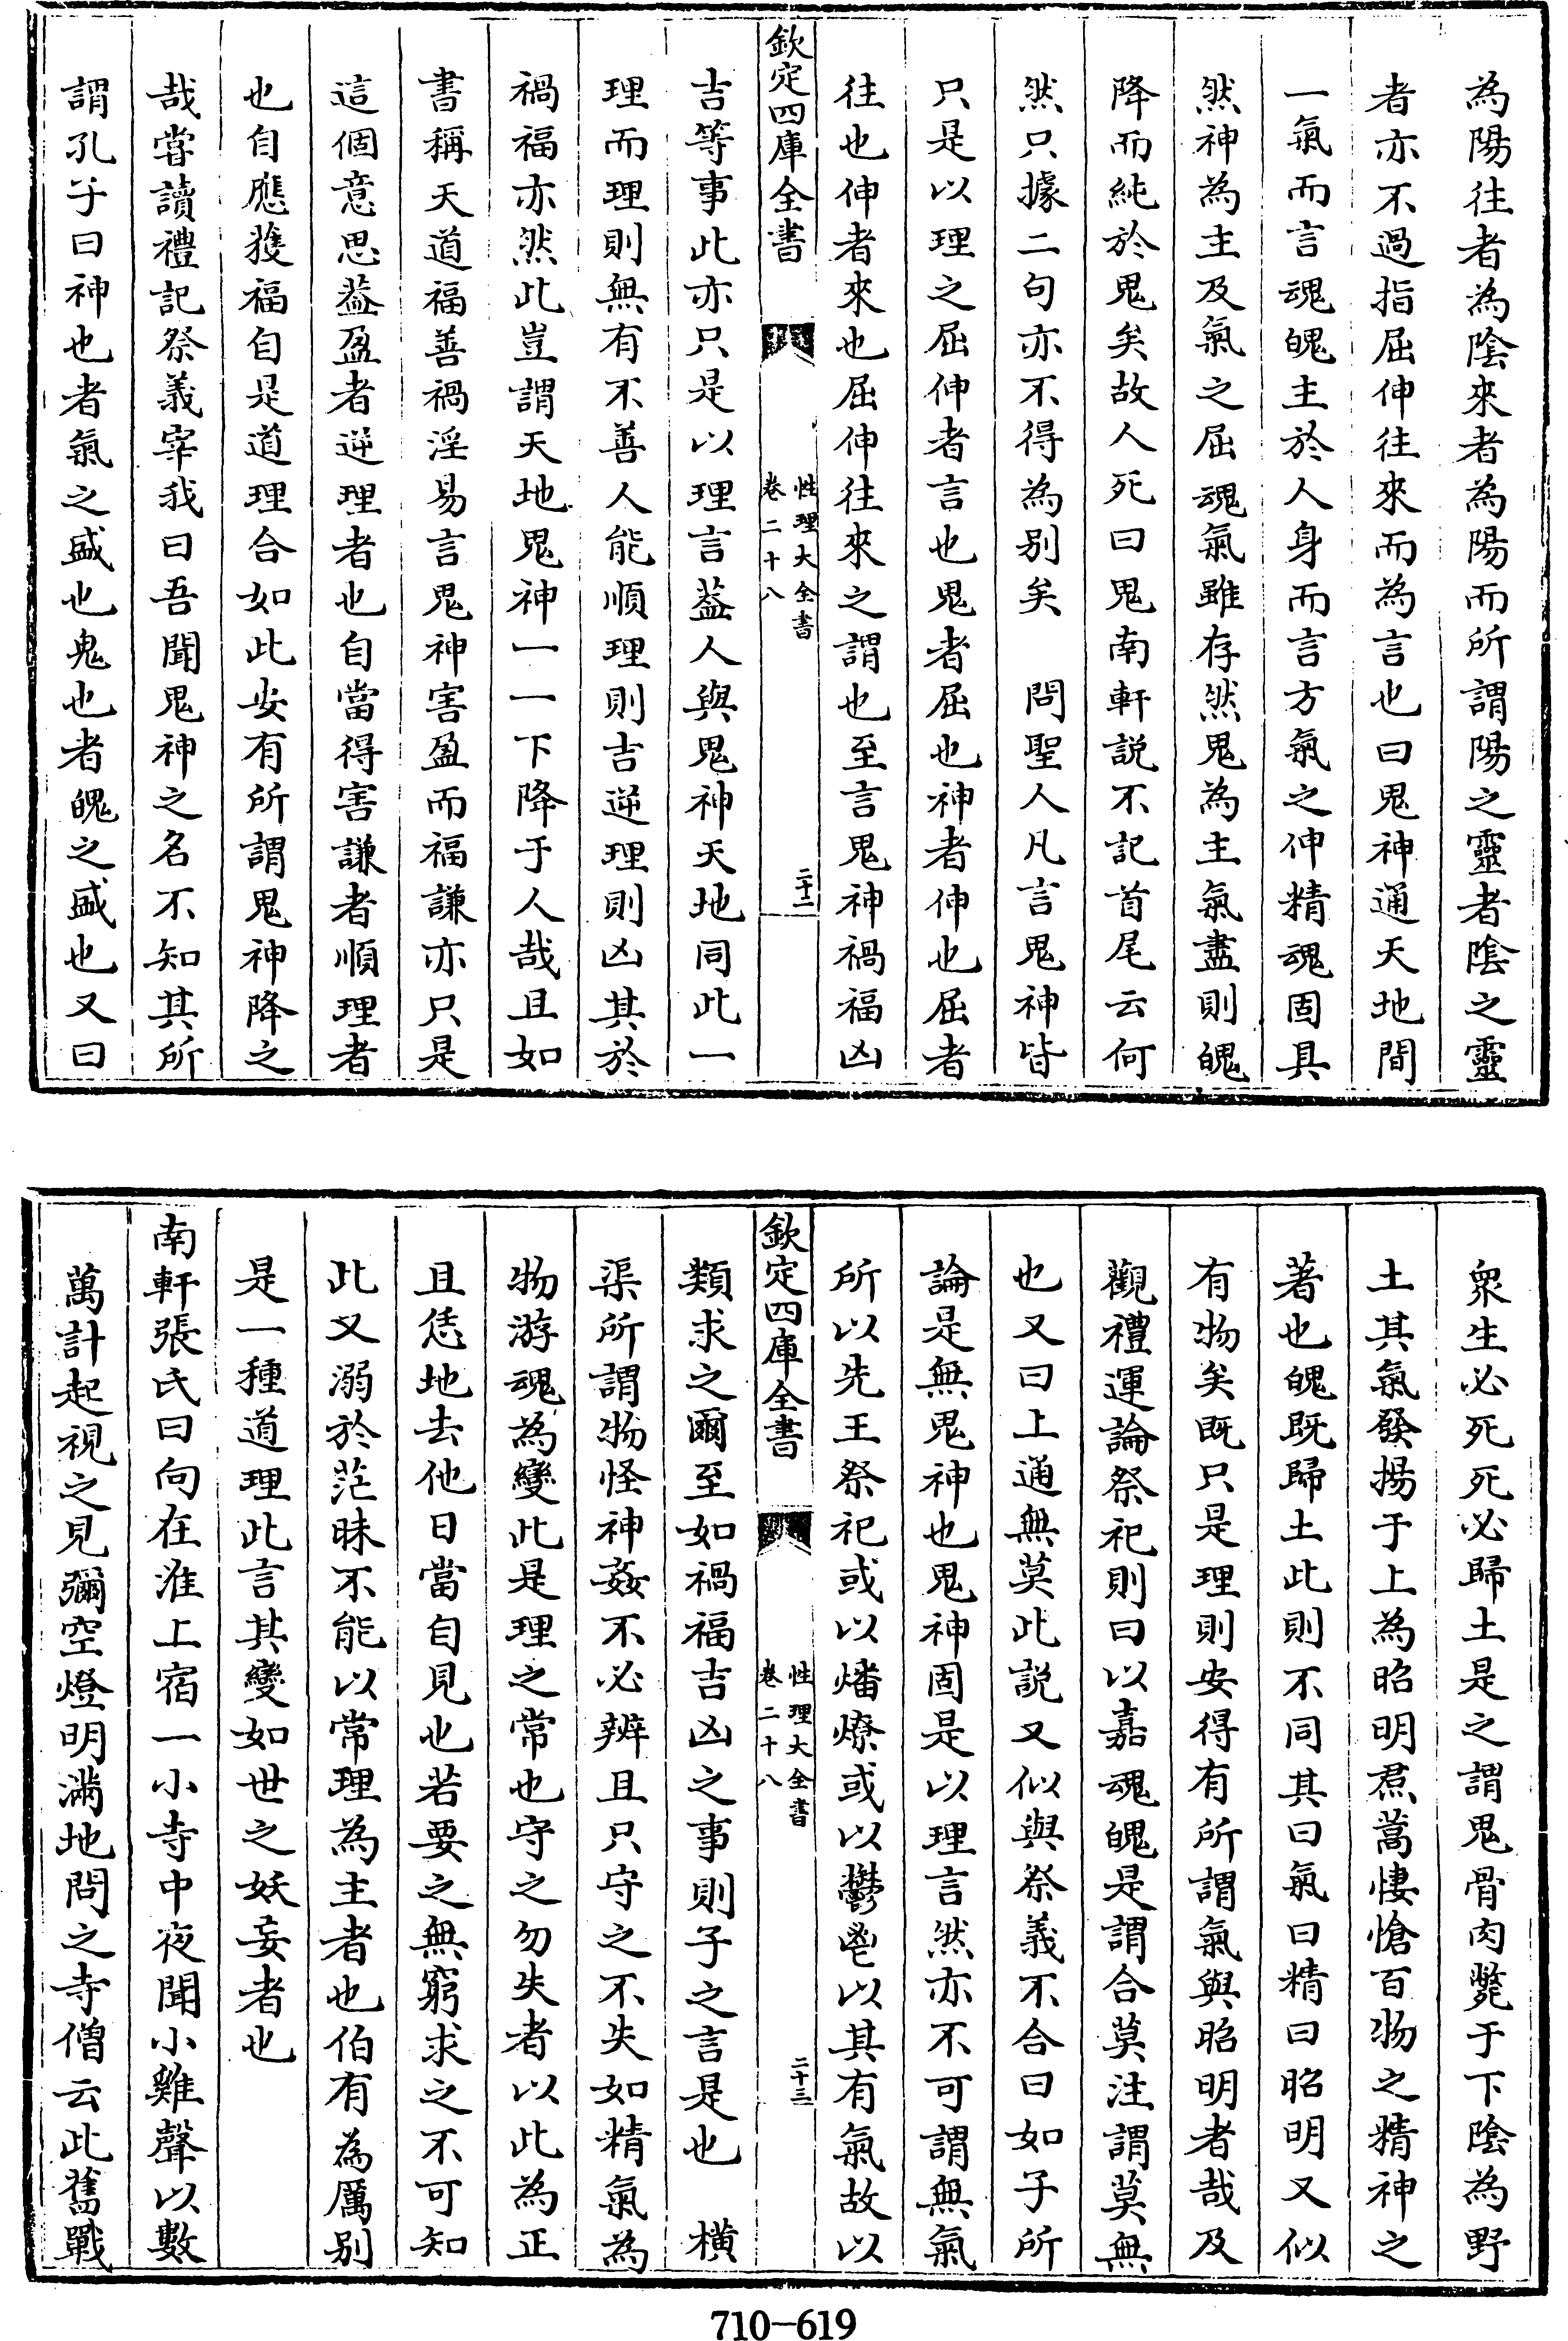 為陽往者為陰來者為陽而所謂陽之靈者陰之靈
者亦不過指屈伸往來而為言也曰鬼神通天地間
一氣而言魂魄主於人身而言方氣之伸精魂固具
然神為主及氣之屈魂氣雖存然鬼為主氣盡則魄
降而純於鬼矣故人死曰鬼南軒説不記首尾云何
然只據二句亦不得為別矣　問聖人凡言鬼神皆
只是以理之屈伸者言也鬼者屈也神者伸也屈者
往也伸者來也屈伸往來之謂也至言鬼神禍福凶
欽定四庫全書
性理大全書
卷二十八
二十二
吉等事此亦只是以理言葢人與鬼神天地同此一
理而理則無有不善人能順理則吉逆理則凶其於
禍福亦然此豈謂天地鬼神一一下降于人哉且如
書稱天道福善禍淫易言鬼神害盈而福謙亦只是
這個意思葢盈者逆理者也自當得害謙者順理者
也自應獲福自是道理合如此安有所謂鬼神降之
哉嘗讀禮記祭義宰我曰吾聞鬼神之名不知其所
謂孔子曰神也者氣之盛也鬼也者魄之盛也又曰
衆生必死死必歸土是之謂鬼骨肉斃于下陰為野
土其氣發揚于上為昭明焄蒿悽愴百物之精神之
著也魄既歸土此則不同其曰氣曰精曰昭明又似
有物矣既只是理則安得有所謂氣與昭明者哉及
觀禮運論祭祀則曰以嘉魂魄是謂合莫注謂莫無
也又曰上通無莫此説又似與祭義不合曰如子所
論是無鬼神也鬼神固是以理言然亦不可謂無氣
所以先王祭祀或以燔燎或以鬱鬯以其有氣故以
欽定四庫全書
性理大全書
卷二十八
二十三
類求之爾至如禍福吉凶之事則子之言是也　橫
渠所謂物怪神姦不必辨且只守之不失如精氣為
物游魂為變此是理之常也守之勿失者以此為正
且恁地去他日當自見也若要之無窮求之不可知
此又溺於茫昧不能以常理為主者也伯有為厲别
是一種道理此言其變如世之妖妄者也
南軒張氏曰向在淮上宿一小寺中夜聞小雞聲以數
萬計起視之見彌空燈明滿地問之寺僧云此舊戰
710-619